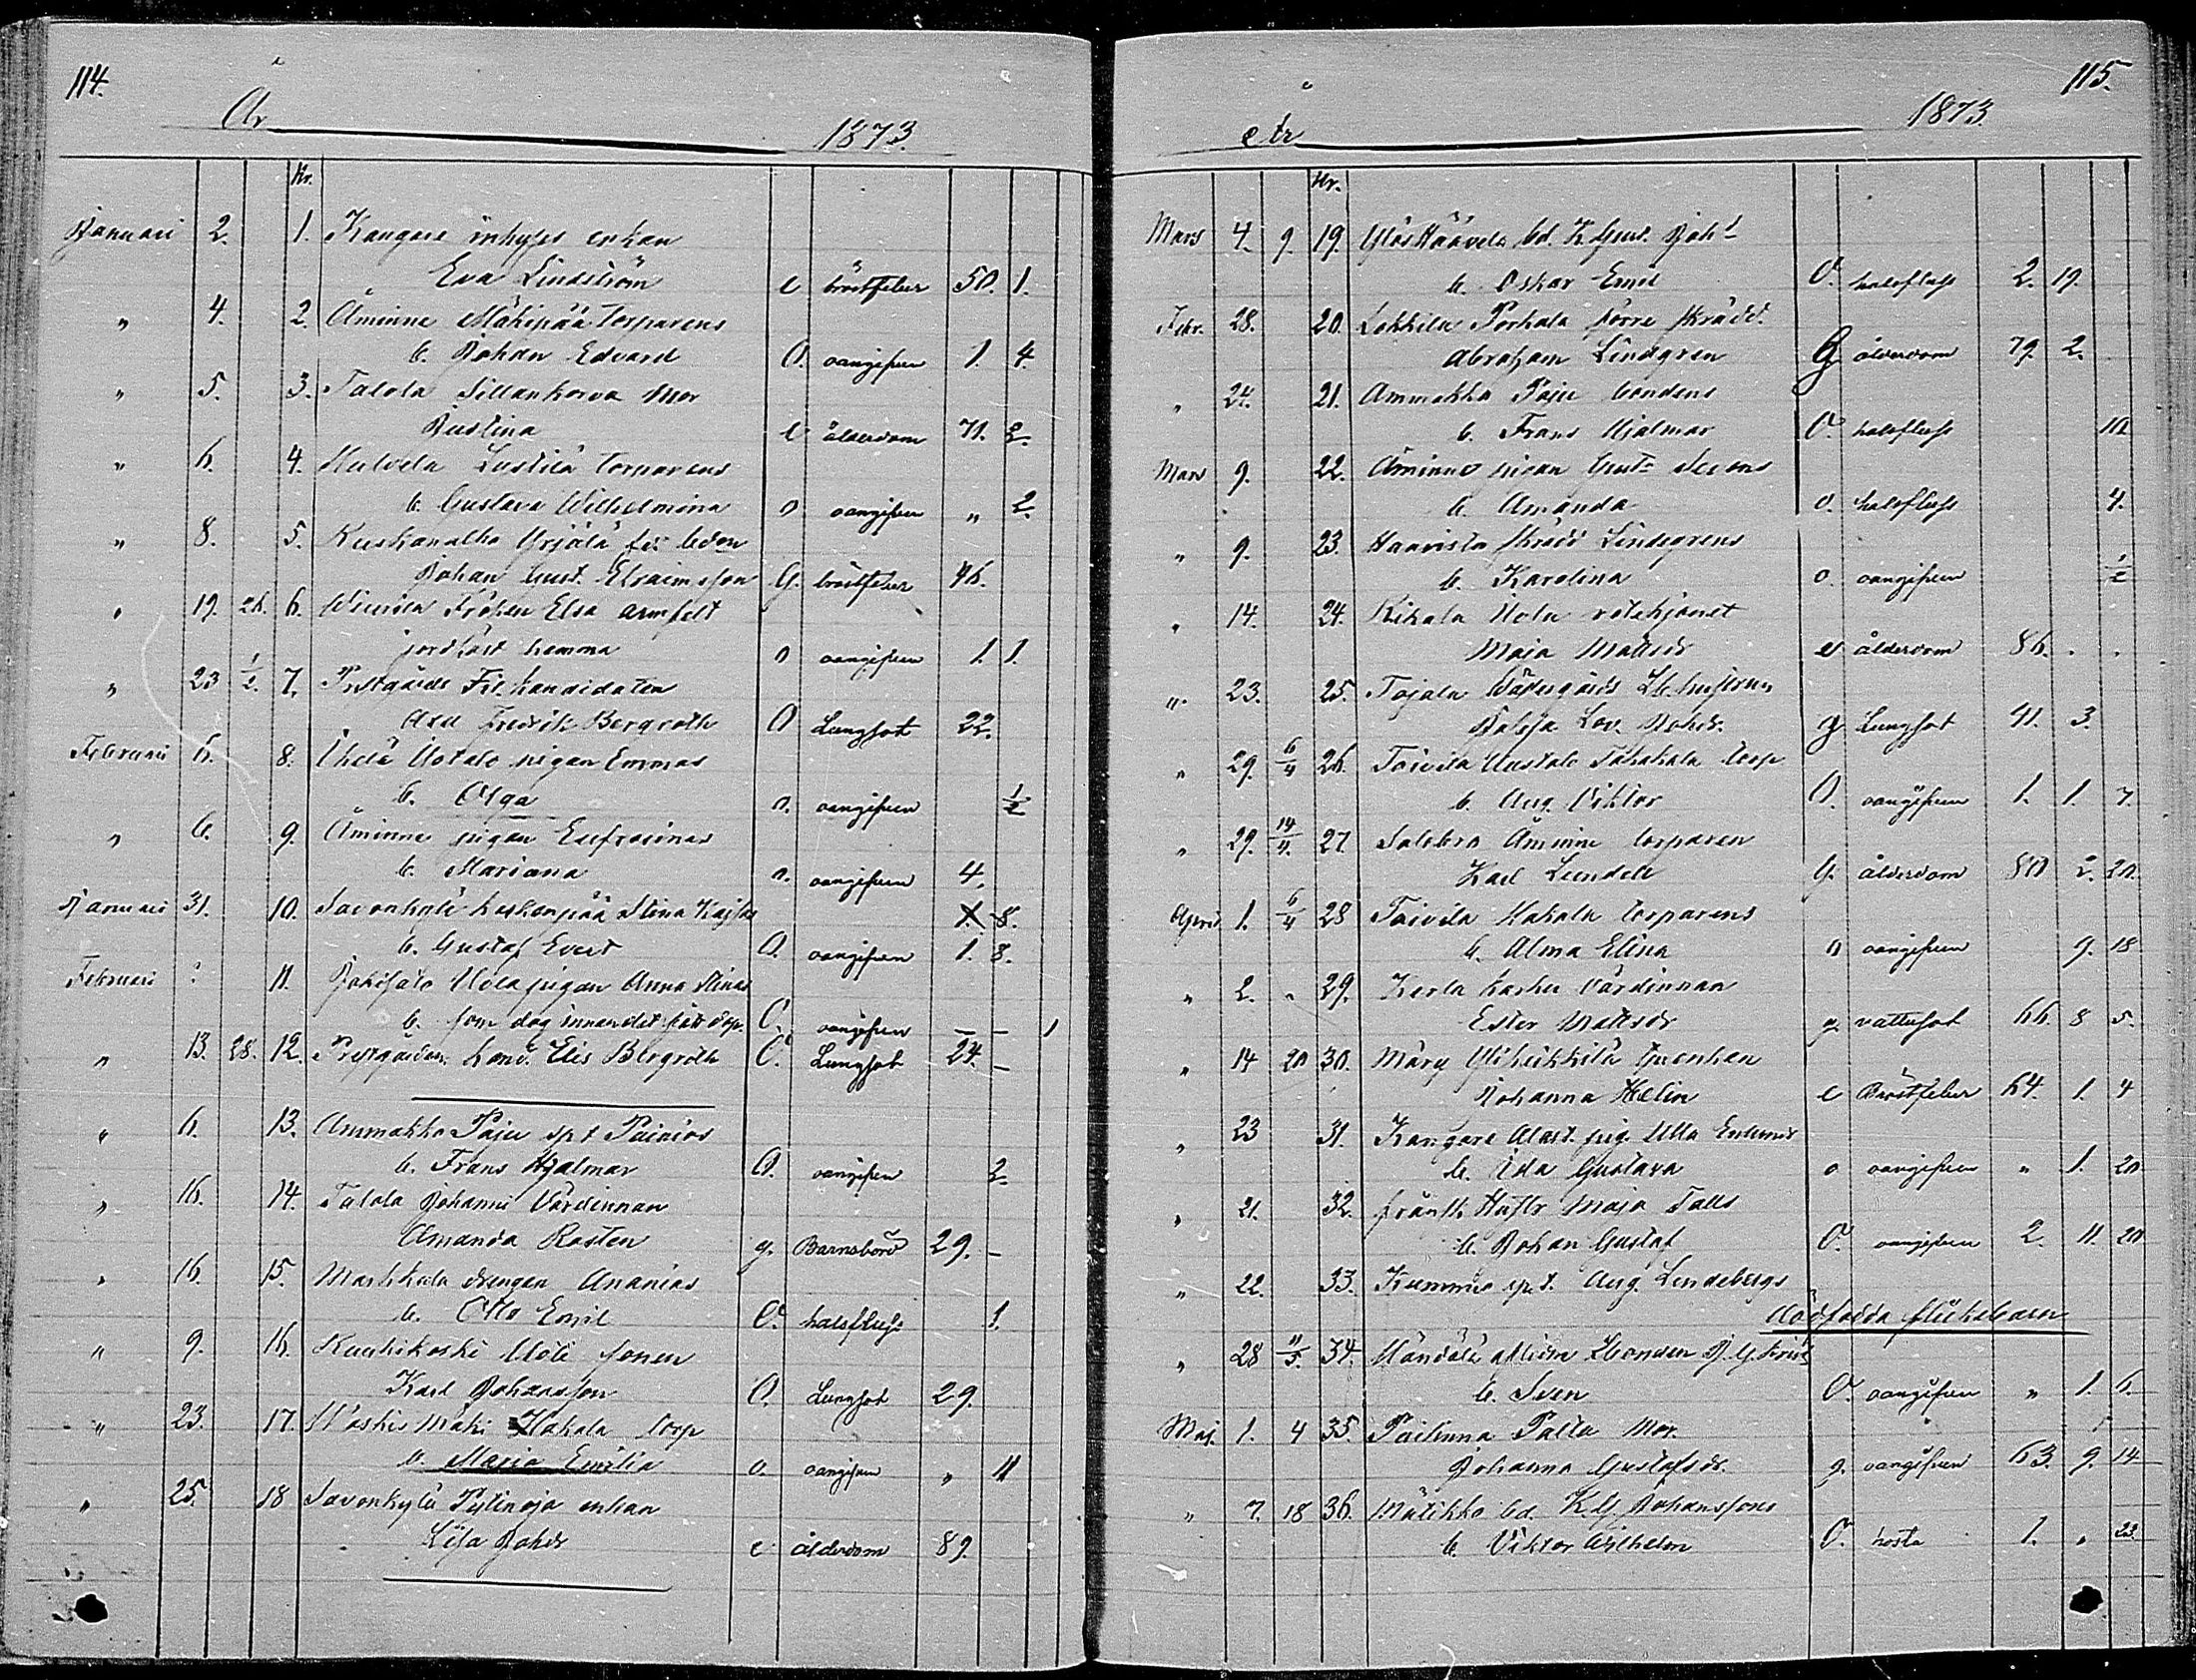 114.
År 1873.
Nr.
Januari 2. 1. Kangare inhyses enkan
Eva Lindström e bröstfeber 50. 1.
" 4. 2. Åminne Mäkipää torparens
b. Johan Edvard O. oangifven 1. 4.
" 5. 3. Talola Sillankorva Mor
Justina e ålderdom 71. 2.
" 6. 4. torparens
b. Gustava Wilhelmina o oangifven " 2.
" 8. 5. Yrjälä
Johan Gust. Efraimsson G. bröstfeber 46.
" 19. 26. 6. Fröken Elsa Armfelt
jordfäst hemma o oangifven 1. 1.
" 23 1/2. 7. Prstgårds Fil. kandidaten
Axel Fredrik Bergroth O Lungsot 22.
Februari 6. 8. Uotalo pigan Emmas
b. Olga o. oangifven 1/2
" 6. 9. Åminne pigan Eufrosinas
b. Mariana o. oangifven 4.
Januari 31. 10. Savonkylä Stina Kajsas 8.
b. Gustaf Evert O. oangifven 1. 8.
Februari 11. Uola pigan Anna Stinas
b. som dog innan det fått dop. O. oangifven — — 1
" 13. 28. 12. Prstgården kand. Elis Bergroth O. Lungsot 24. —
" 6. 13. Ammakko Paju
b. Frans Hjalmar O. oangifven 2.
" 16. 14. Talola Johanni Värdinnan
Amanda Rosten g. Barnsbörd 29. —
" 16. 15. Markkula drengen Ananias
b. Otto Emil O. halsfluss 1.
" 9. 16. Kuukikoski sonen
Karl Johansson O. Lungsot 29.
" 23. 17. Mäki Hakala torp
b. Maria Emilia o. oangifven " 11
" 25. 18 Savonkylä Pytinoja enkan
Lisa Johdr e ålderdom 89.
115.
År 1873
Nr.
Mars 4. 9. 19. bd. K. Gust. Joh
b. Oskar Emil O. halsfluss 2. 19.
Febr. 28. 20. Lakkila Porhala förre skrädd.
Abraham Lindgren G ålderdom 79. 2.
" 24. 21. Ammakko Paju bondens
b. Frans Hjalmar O. halsfluss 10
Mars 9. 22. Åminne pigan
b. Amanda o. halsfluss 4.
" 9. 23. Haavisto skrädd Lindegrens
b. Karolina o. oangifven 1/2
" 14. 24. Rikala Uola rotehjonet
Maja Mattsdr e ålderdom 86. . .
" 23. 25. Tajala
Lov. Johdr. g Lungsot 41. 3.
" 29. 6/4 26. Toivila Uustalo torp
b. Aug. Viktor O. oangifven 1. 1. 7.
" 29. 14/4. 27. Salobro Åminne torparen
Karl Lundell G. ålderdom 80 2. 20.
April 1. 6/4 28 Toivila Hakala torparens
b. Alma Elina o oangifven 9. 18
" 2. " 29. Kerla Karhu Värdinnan
Ester Mattsdr g. vattusot 66. 8 5.
" 14 20 30. Märy Yliheikkilä
Johanna Helin e Bröstfeber 64. 1. 4
" 23 31. Kangare pig. Ulla
b. Ida Gustava o oangifven " 1. 20
" 21. 32. Maja Talls
b. Johan Gustaf O. oangifven 2. 11. 20
" 22. 33. Kumnio Aug. Lindebergs
dödfödda flickebarn
" 28 11/5. 34.
b. Sven O. oangifven " 1. 6.
Maj. 1. 4 35. Pailinna Palta Mor
Johanna Gustafsdr. g. oangifven 63. 9. 14
" 7. 18 36. Mätikko bd. K. G. Johanssons
b. Viktor Wilhelm O. hosta 1. " 23.